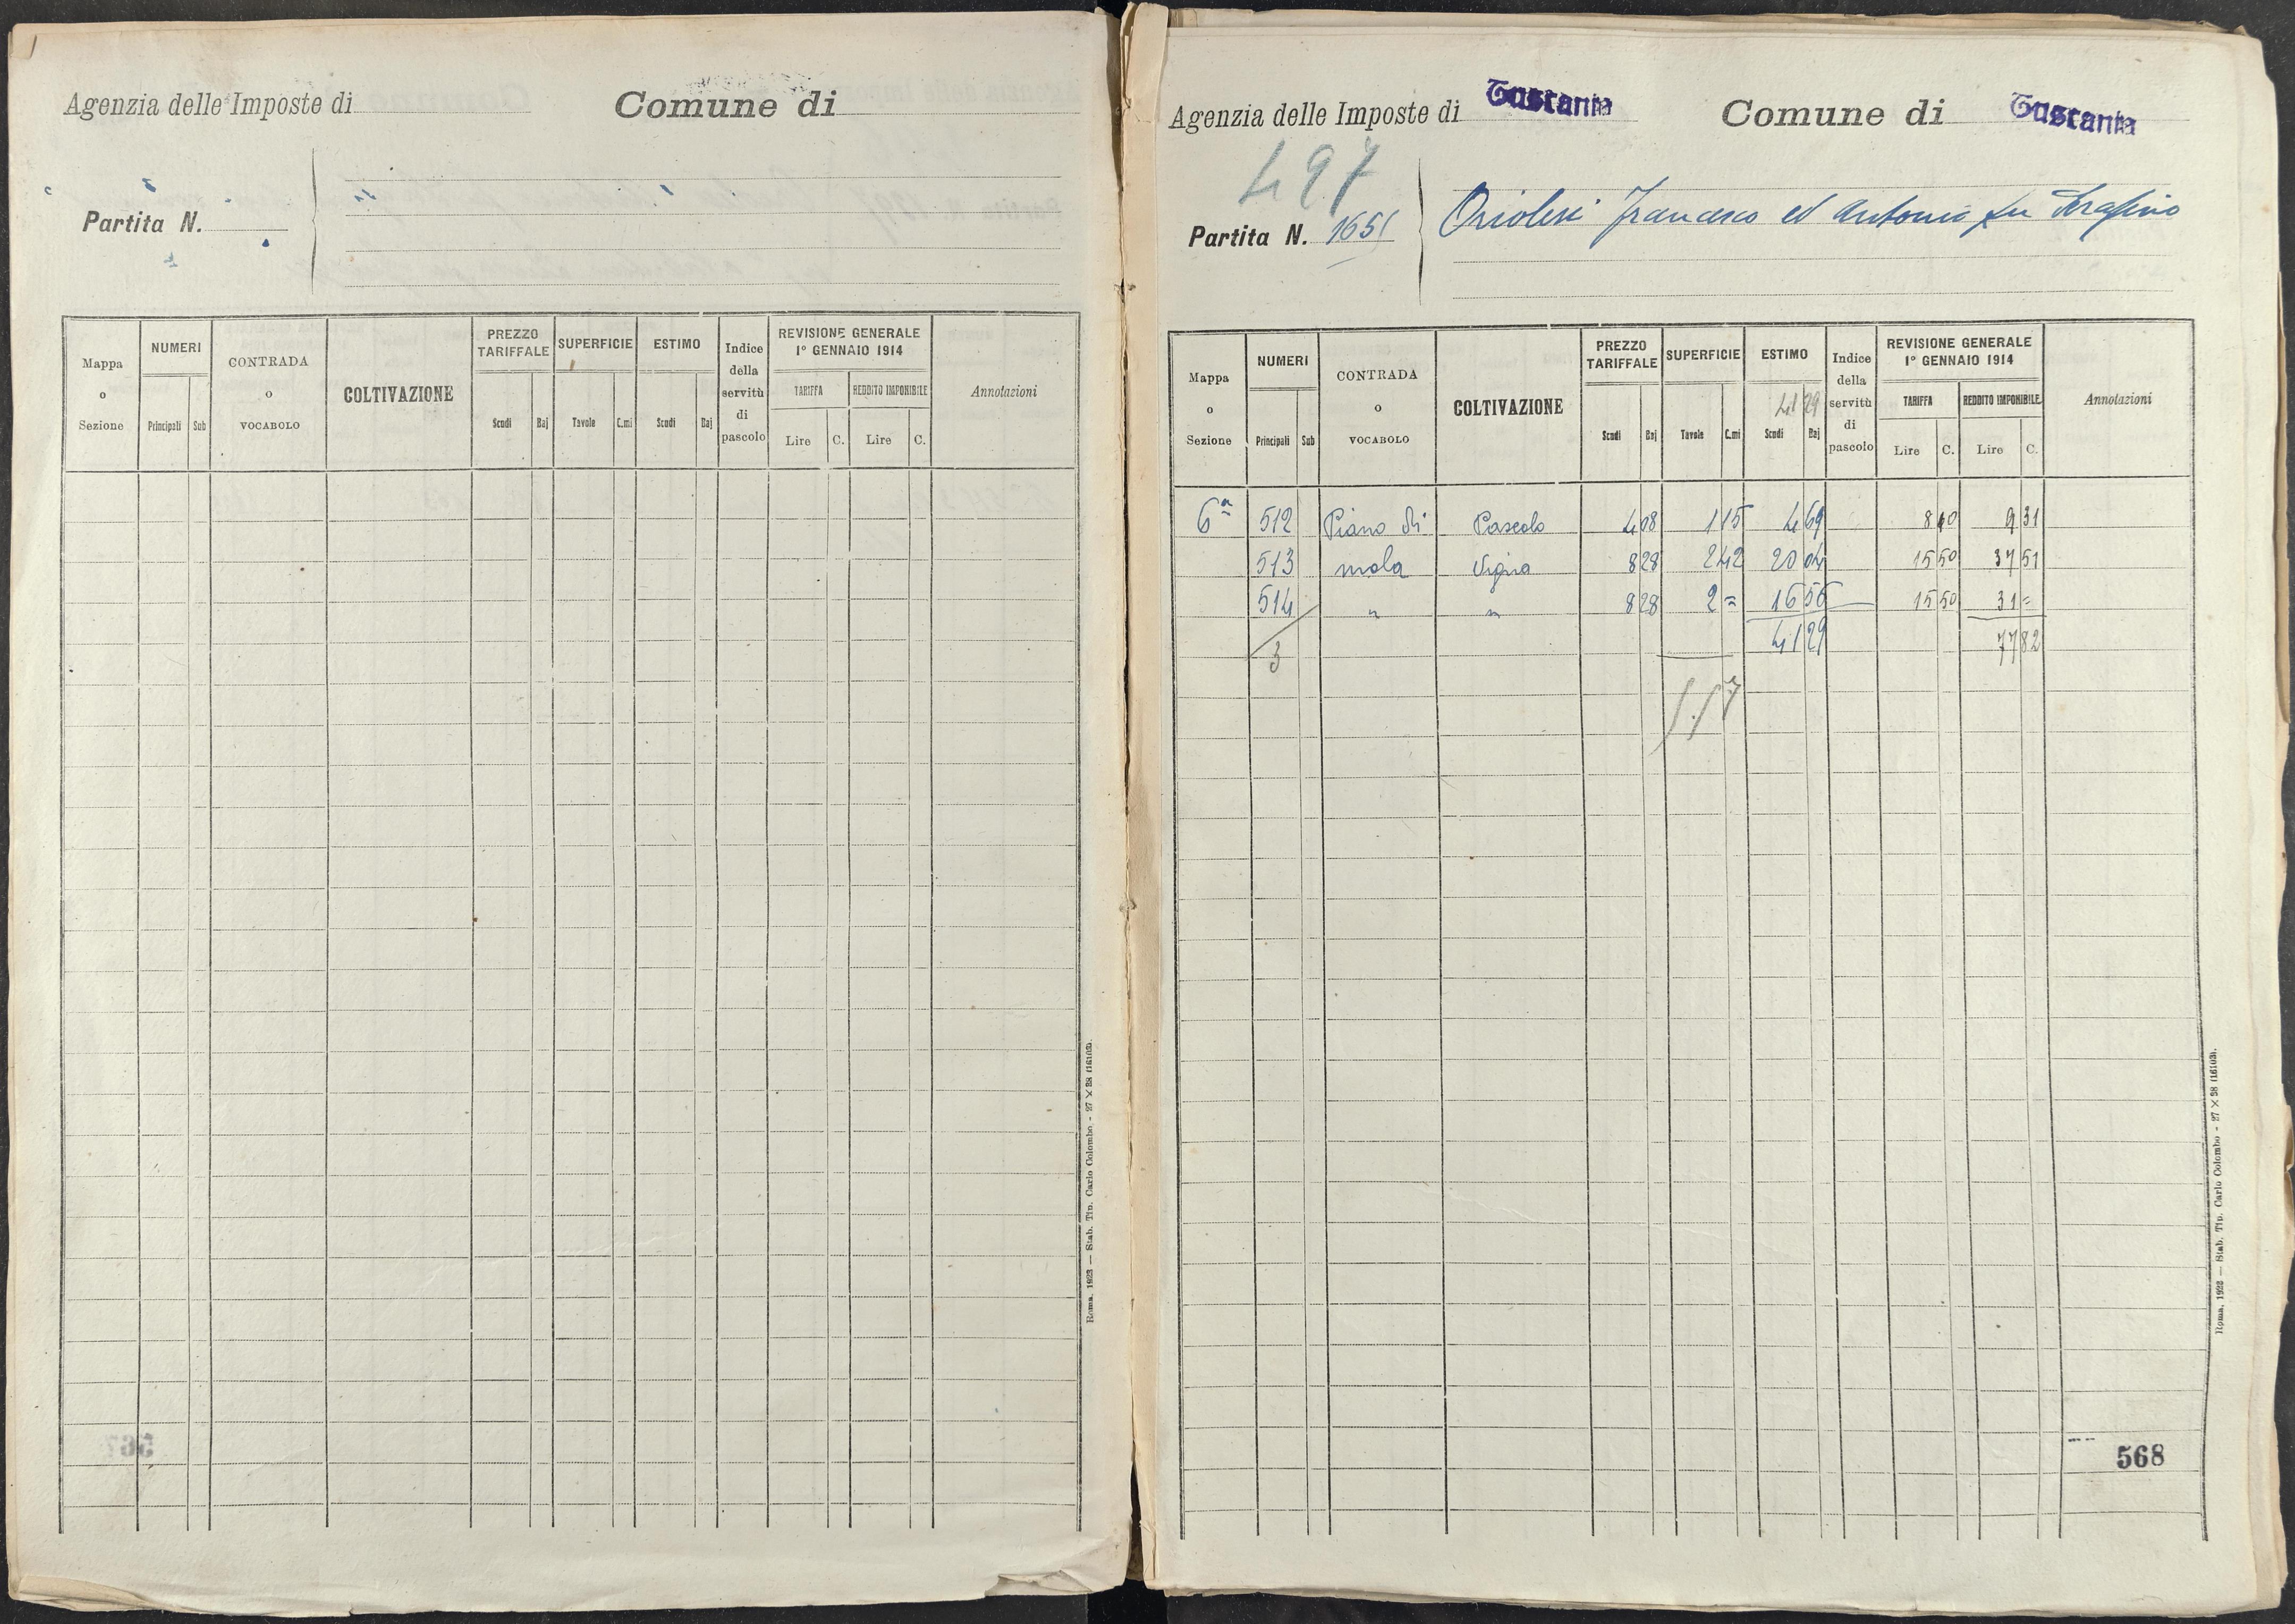 Agenzia delle Imposte di
Comune di
Partita N.
Mappa o Sezione
NUMERI
Principali
Sub
CONTRADA o VOCABOLO
COLTIVAZIONE
PREZZO TARIFFALE
Scudi
Baj
SUPERFICIE
Tavole
C.mi
ESTIMO
Scudi
Baj
Indice della servitù di pascolo
REVISIONE GENERALE
1° GENNAIO 1914
TARIFFA
Lire
C.
REDDITO IMPONIBILE
Lire
C.
Annotazioni
Roma, 1923 — Stab. Tip. Carlo Colombo - 27 × 38 (16103).
567
Agenzia delle Imposte di Tuscania
Comune di Tuscania
497
Partita N. 1651
Oriolesi Francesco ed Antonio fu Serafino
Mappa o Sezione
NUMERI
Principali
Sub
CONTRADA o VOCABOLO
COLTIVAZIONE
PREZZO TARIFFALE
Scudi
Baj
SUPERFICIE
Tavole
C.mi
ESTIMO
41 29
Scudi
Baj
Indice della servitù di pascolo
REVISIONE GENERALE
1° GENNAIO 1914
TARIFFA
Lire
C.
REDDITO IMPONIBILE
Lire
C.
Annotazioni
6ª 512 Piano di Pascolo 4 08 1 15 4 69 8 10 9 31
513 mola Vigna 8 28 2 42 20 04 15 50 37 51
514 " " 8 28 2 = 16 56 15 50 31 =
3 41 29 77 82
5.57
Roma, 1923 — Stab. Tip. Carlo Colombo - 27 × 38 (16103).
568